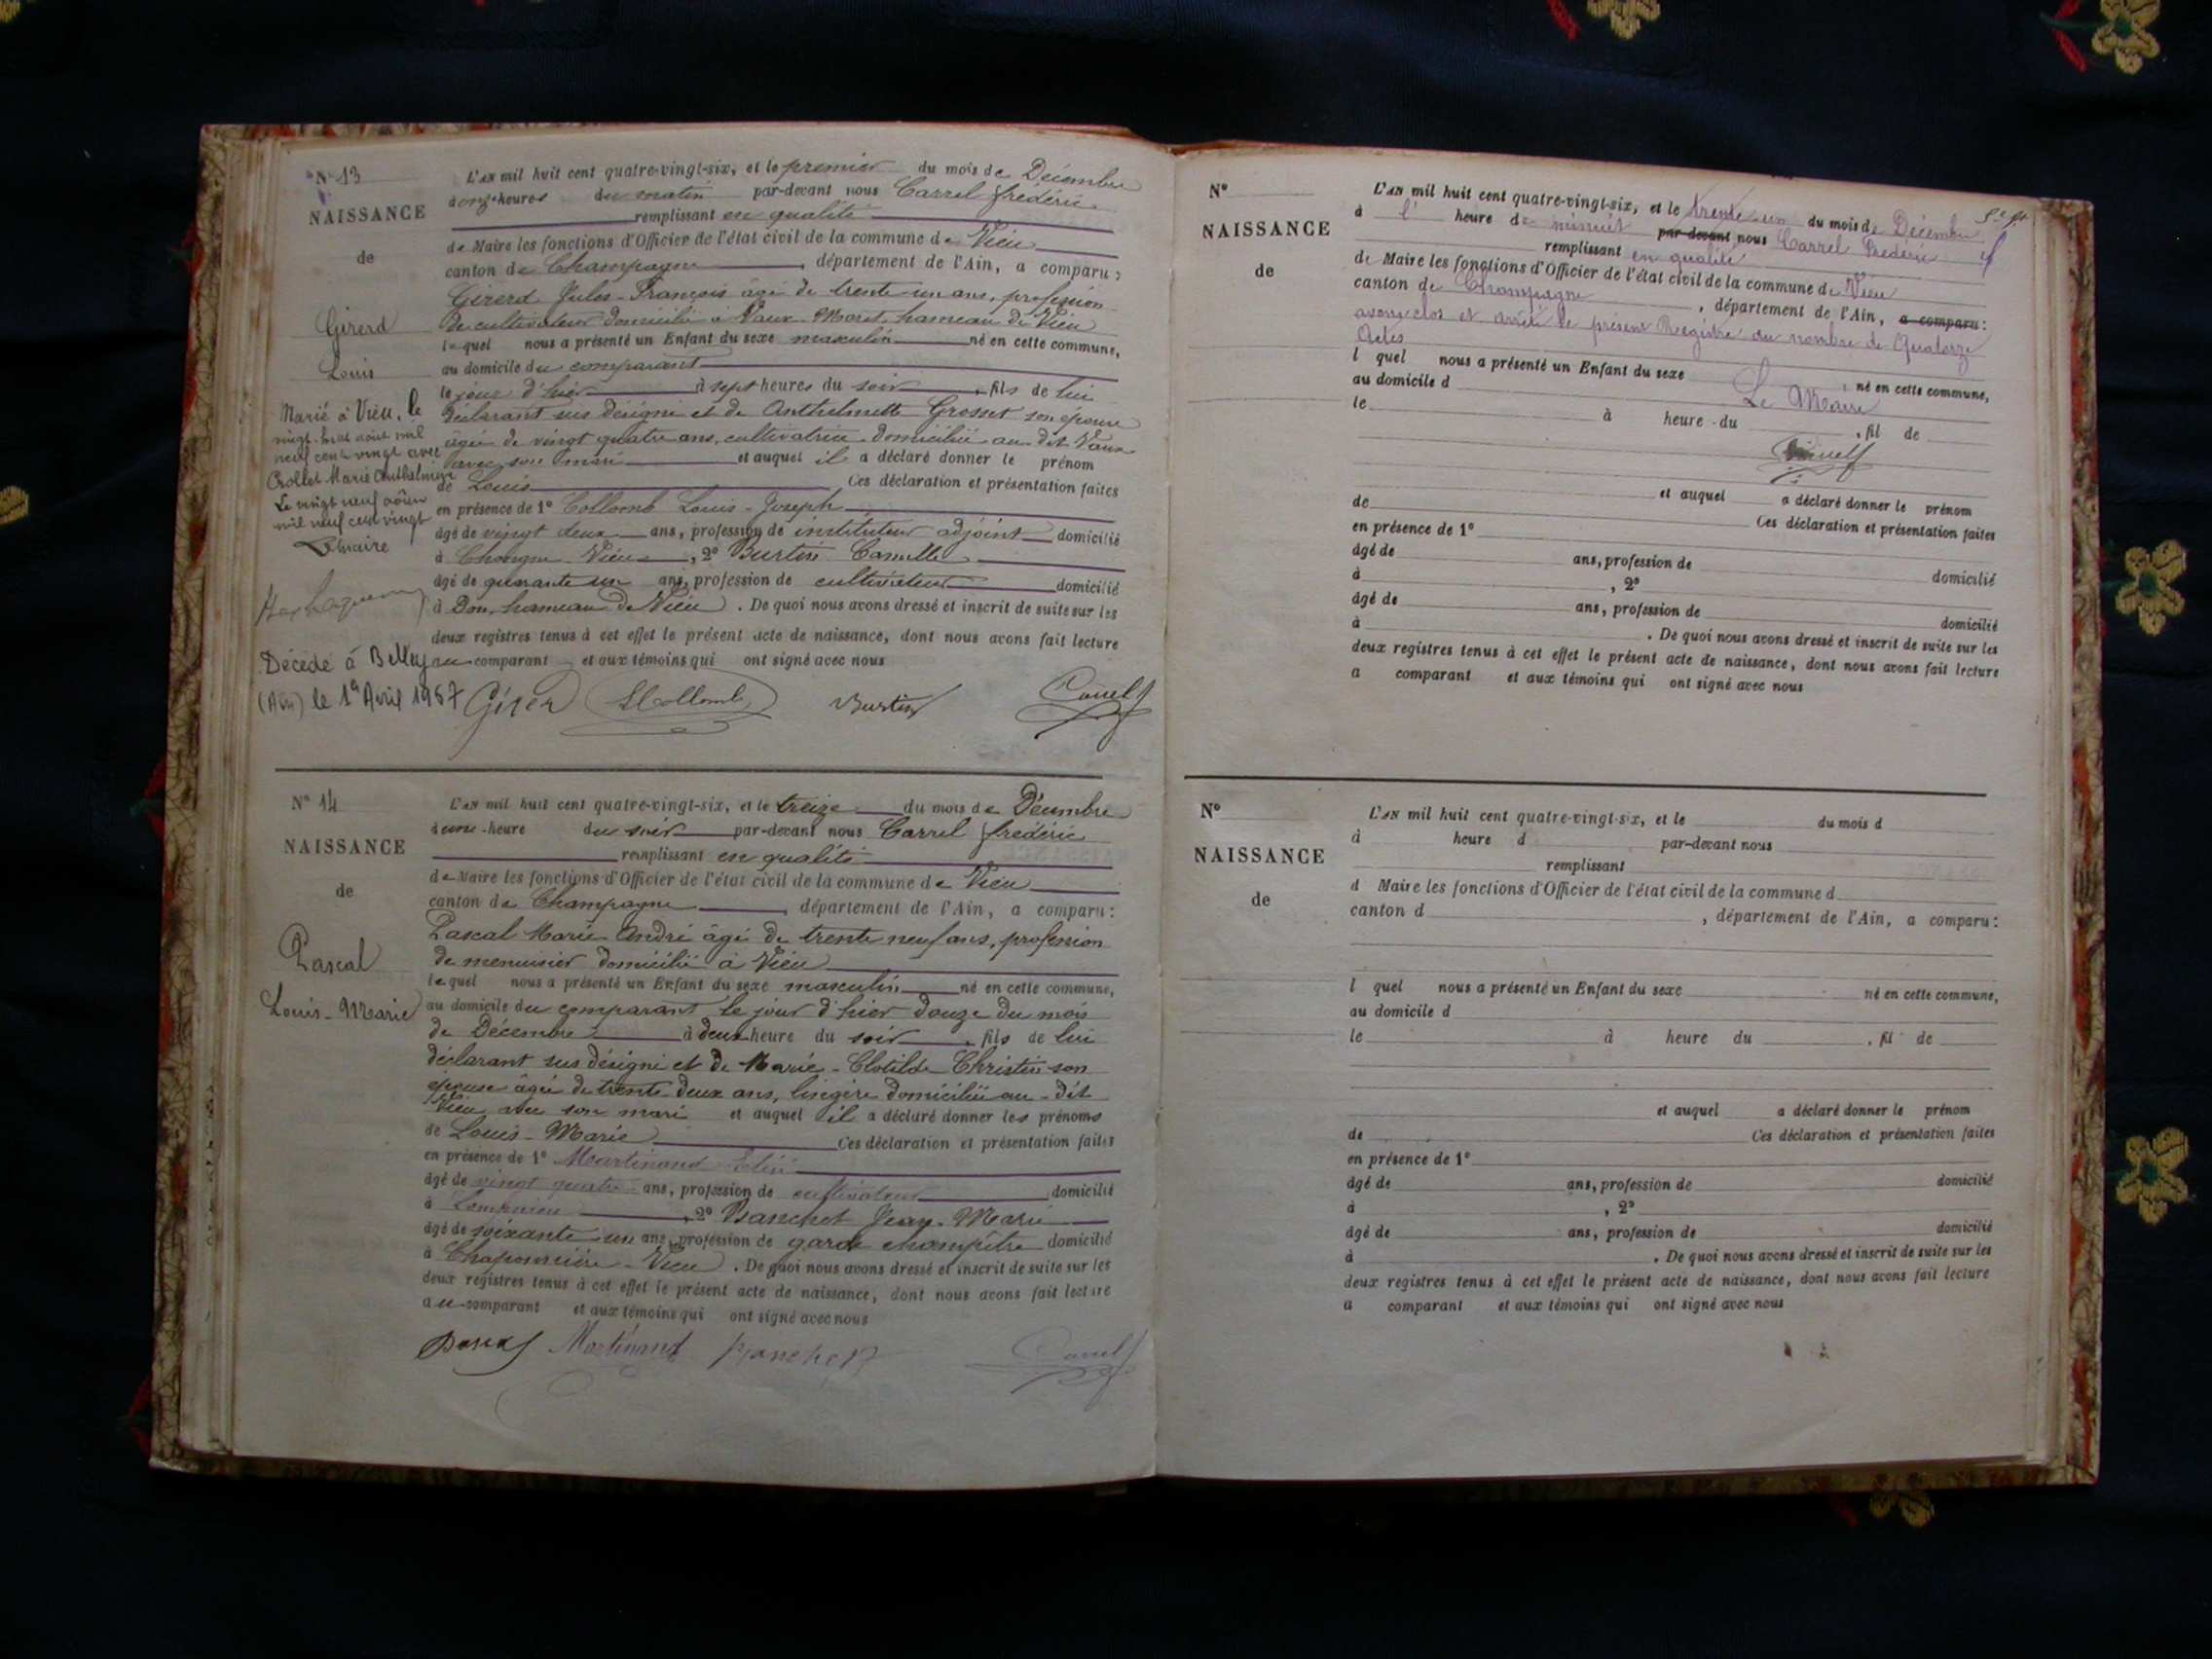 N° 13
NAISSANCE
de
Girerd
Louis
Marié à Vieu, le
vingt-huit août mil
neuf cent vingt avec
Rollet Marie Anthelmine
Le vingt neuf août
mil neuf cent vingt
Le maire
Décédé à Belley
(Ain) le 1er Avril 1967
L'AN mil huit cent quatre-vingt-six, et le premier du mois de Décembre
à onze heures du matin par-devant nous Carrel frédéric
remplissant en qualité
de Maire les fonctions d'Officier de l'état civil de la commune de Vieu
canton de Champagne, département de l'Ain, a comparu :
Girerd Jules-François âgé de trente-un ans, profession
de cultivateur domicilié à Vaux-Moret, hameau de Vieu
lequel nous a présenté un Enfant du sexe masculin né en cette commune,
au domicile du comparant
le jour d'hier à sept heures du soir, fils de lui
déclarant sus désigné et de Anthelmette Grosset son épouse
âgée de vingt quatre ans, cultivatrice domiciliée au dit Vaux
avec son mari et auquel il a déclaré donner le prénom
de Louis Ces déclaration et présentation faites
en présence de 1° Collomb Louis-Joseph
âgé de vingt deux ans, profession de instituteur adjoint domicilié
à Vieu, 2° Burtin Camille
âgé de quarante un ans, profession de cultivateur domicilié
à Don, hameau de Vieu. De quoi nous avons dressé et inscrit de suite sur les
deux registres tenus à cet effet le présent acte de naissance, dont nous avons fait lecture
au comparant et aux témoins qui ont signé avec nous
Girerd LCollomb Burtin Carrel f
N° 14
NAISSANCE
de
Pascal
Louis-Marie
L'AN mil huit cent quatre-vingt-six, et le treize du mois de Décembre
à une heure du soir par-devant nous Carrel frédéric
remplissant en qualité
de Maire les fonctions d'Officier de l'état civil de la commune de Vieu
canton de Champagne, département de l'Ain, a comparu :
Pascal Marie-André âgé de trente neuf ans, profession
de menuisier domicilié à Vieu
lequel nous a présenté un Enfant du sexe masculin né en cette commune,
au domicile du comparant le jour d'hier douze du mois
de Décembre à deux heure du soir, fils de lui
déclarant sus désigné et de Marie-Clotilde Christin son
épouse âgée de trente-deux ans, lingère domiciliée au-dit
Vieu avec son mari et auquel il a déclaré donner les prénoms
de Louis-Marie Ces déclaration et présentation faites
en présence de 1° Martinand Elie
âgé de vingt quatre ans, profession de cultivateur domicilié
à Lompnieu, 2° Banchet Jean-Marie
âgé de soixante un ans, profession de garde champêtre domicilié
à Chaponnière-Vieu. De quoi nous avons dressé et inscrit de suite sur les
deux registres tenus à cet effet le présent acte de naissance, dont nous avons fait lecture
au comparant et aux témoins qui ont signé avec nous
Pascal Martinand Banchet Carrel f
N°
NAISSANCE
de
L'AN mil huit cent quatre-vingt-six, et le trente-un du mois de Décembre
à l' heure de minuit par-devant nous Carrel Frédéric
remplissant en qualité
de Maire les fonctions d'Officier de l'état civil de la commune de Vieu
canton de Champagne, département de l'Ain, a comparu :
avons clos et arrêté le présent Registre au nombre de Quatorze
Actes
l quel nous a présenté un Enfant du sexe né en cette commune,
au domicile d Le Maire
le à heure du , fil de
Carrel f
et auquel a déclaré donner le prénom
de Ces déclaration et présentation faites
en présence de 1°
âgé de ans, profession de domicilié
à , 2°
âgé de ans, profession de domicilié
à . De quoi nous avons dressé et inscrit de suite sur les
deux registres tenus à cet effet le présent acte de naissance, dont nous avons fait lecture
a comparant et aux témoins qui ont signé avec nous
N°
NAISSANCE
de
L'AN mil huit cent quatre-vingt-six, et le du mois d
à heure d par-devant nous
remplissant
d Maire les fonctions d'Officier de l'état civil de la commune d
canton d , département de l'Ain, a comparu :
l quel nous a présenté un Enfant du sexe né en cette commune,
au domicile d
le à heure du , fil de
et auquel a déclaré donner le prénom
de Ces déclaration et présentation faites
en présence de 1°
âgé de ans, profession de domicilié
à , 2°
âgé de ans, profession de domicilié
à . De quoi nous avons dressé et inscrit de suite sur les
deux registres tenus à cet effet le présent acte de naissance, dont nous avons fait lecture
a comparant et aux témoins qui ont signé avec nous